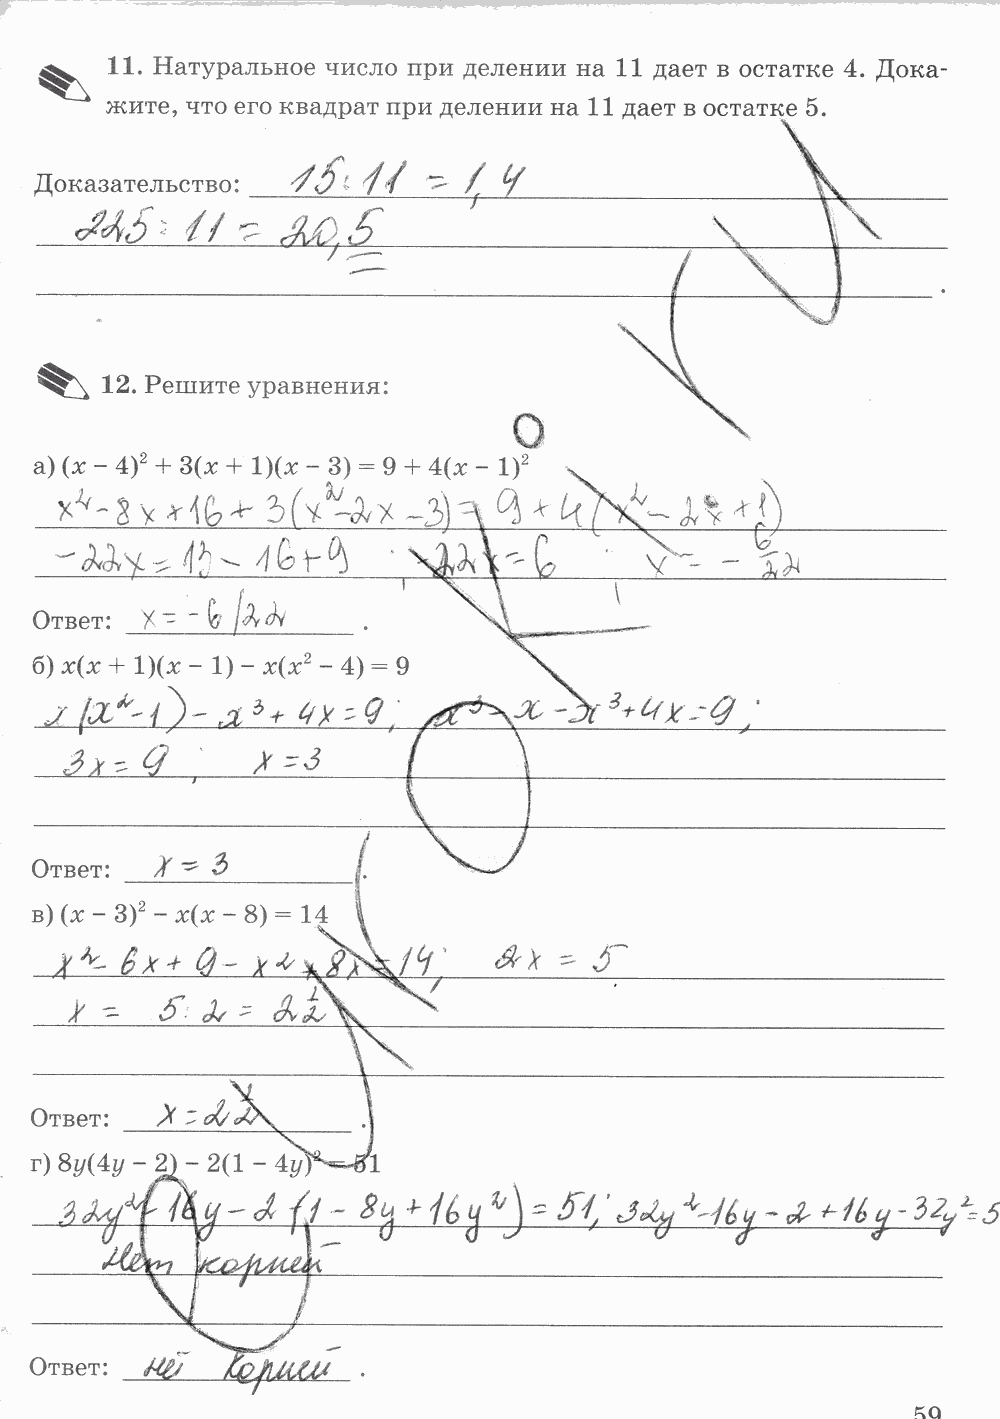 11. Натуральное число при делении на 11 дает в остатке 4. Дока-
жите, что его квадрат при делении на 11 дает в остатке 5.
Доказательство: 15 : 11 = 1,4
225 : 11 = 20,5
.
12. Решите уравнения:
а) (x − 4)² + 3(x + 1)(x − 3) = 9 + 4(x − 1)²
x² - 8x + 16 + 3(x² - 2x - 3) = 9 + 4(x² - 2x + 1)
-22x = 13 - 16 + 9 ; -22x = 6 ; x = - 6/22
Ответ: x = -6/22 .
б) x(x + 1)(x − 1) − x(x² − 4) = 9
x(x² - 1) - x³ + 4x = 9; x³ - x - x³ + 4x = 9;
3x = 9 ; x = 3
Ответ: x = 3 .
в) (x − 3)² − x(x − 8) = 14
x² - 6x + 9 - x² + 8x = 14; 2x = 5
x = 5 : 2 = 2 1/2
Ответ: x = 2 1/2 .
г) 8y(4y − 2) − 2(1 − 4y)² = 51
32y² - 16y - 2(1 - 8y + 16y²) = 51; 32y² - 16y - 2 + 16y - 32y² = 5
Нет корней
Ответ: нет корней .
59